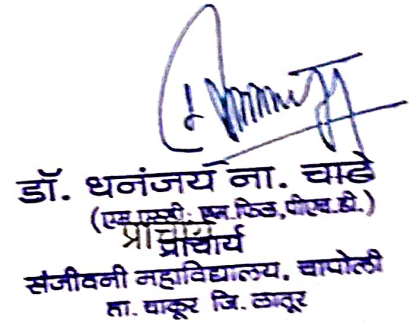 डॉ. धनंजय ना. चाटे
(एम.एस्सी. एम.फिल,पीएच.डी.)
प्राचार्य
प्राचार्य
संजीवनी महाविद्यालय, चापोली
ता. चाकूर जि. लातूर